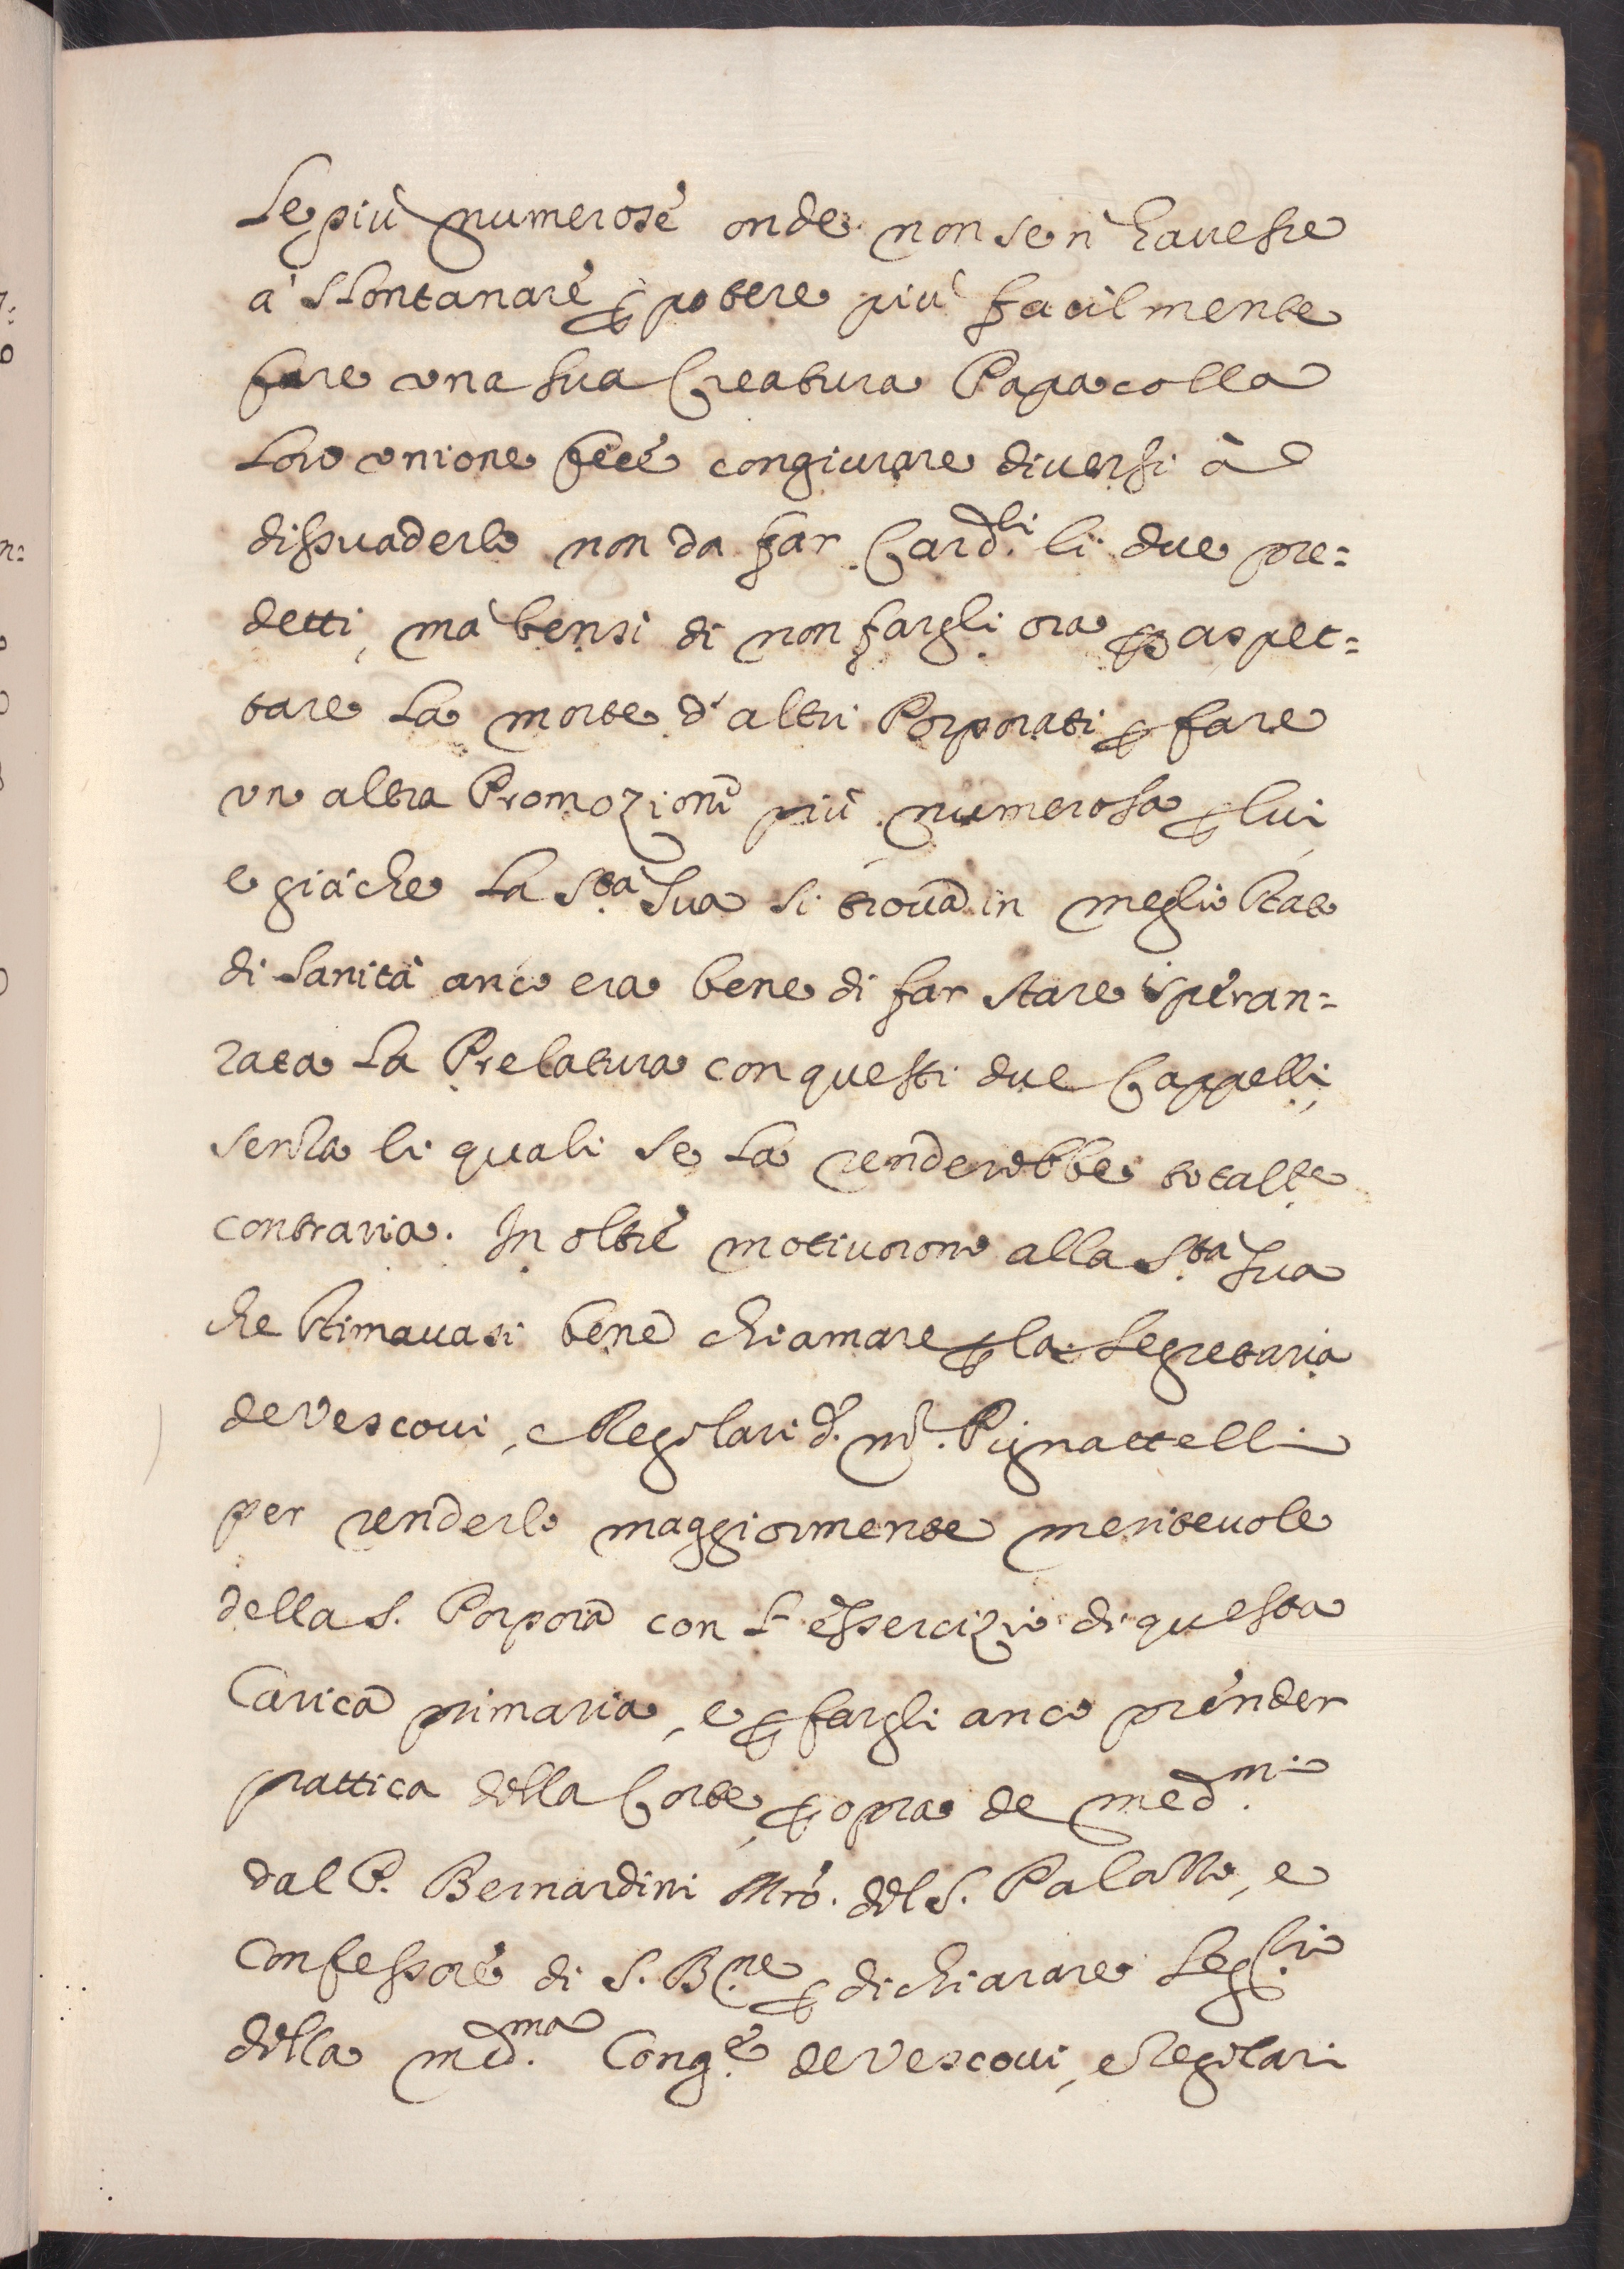 le più numerose onde non se n'havesse
a' slontanare ꝑ potere più facilmente
fare una sua Creatura Papa colla
loro unione fece congiurare diversi à
dissuaderlo non da far Card.li li due pre=
detti, mà bensi di non fargli ora ꝑ aspet=
tare la morte d'altri Porporati ꝑ fare
un altra Promozione più numerosa ꝑ lui,
e già che la S.tà Sua si trova in meglio stato
di sanità anco era bene di far stare isperan=
zata la Prelatura con questi due Cappelli,
senza li quali se la renderebbe total.te
contraria. In oltre motivorono alla S.tà Sua
che stimavasi bene chiamare ꝑ la Segretaria
de Vescovi, e Regolari d. mr. Pignattelli
per renderlo maggiormente meritevole
della S. Porpora con l'essercizio di questa
Carica primaria, e ꝑ fargli anco prender
prattica della Corte, ꝑ opra de med.mi
dal P. Bernardini Mro. del S. Palazzo, e
Confessore di S. B.ne ꝑ dichiarare Seg.rio
della med.ma Cong.e de Vescovi, e Regolari